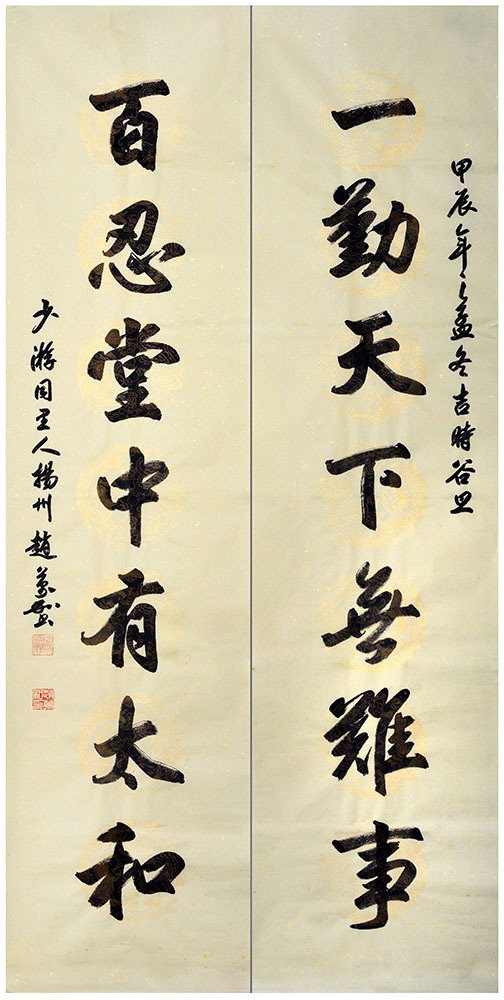 甲辰年之孟冬吉時谷旦
一勤天下無難事
百忍堂中有太和
少游同里人揚州趙